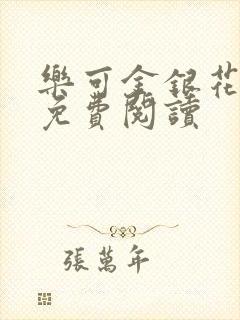 樂可金銀花
免費閱讀
張萬年